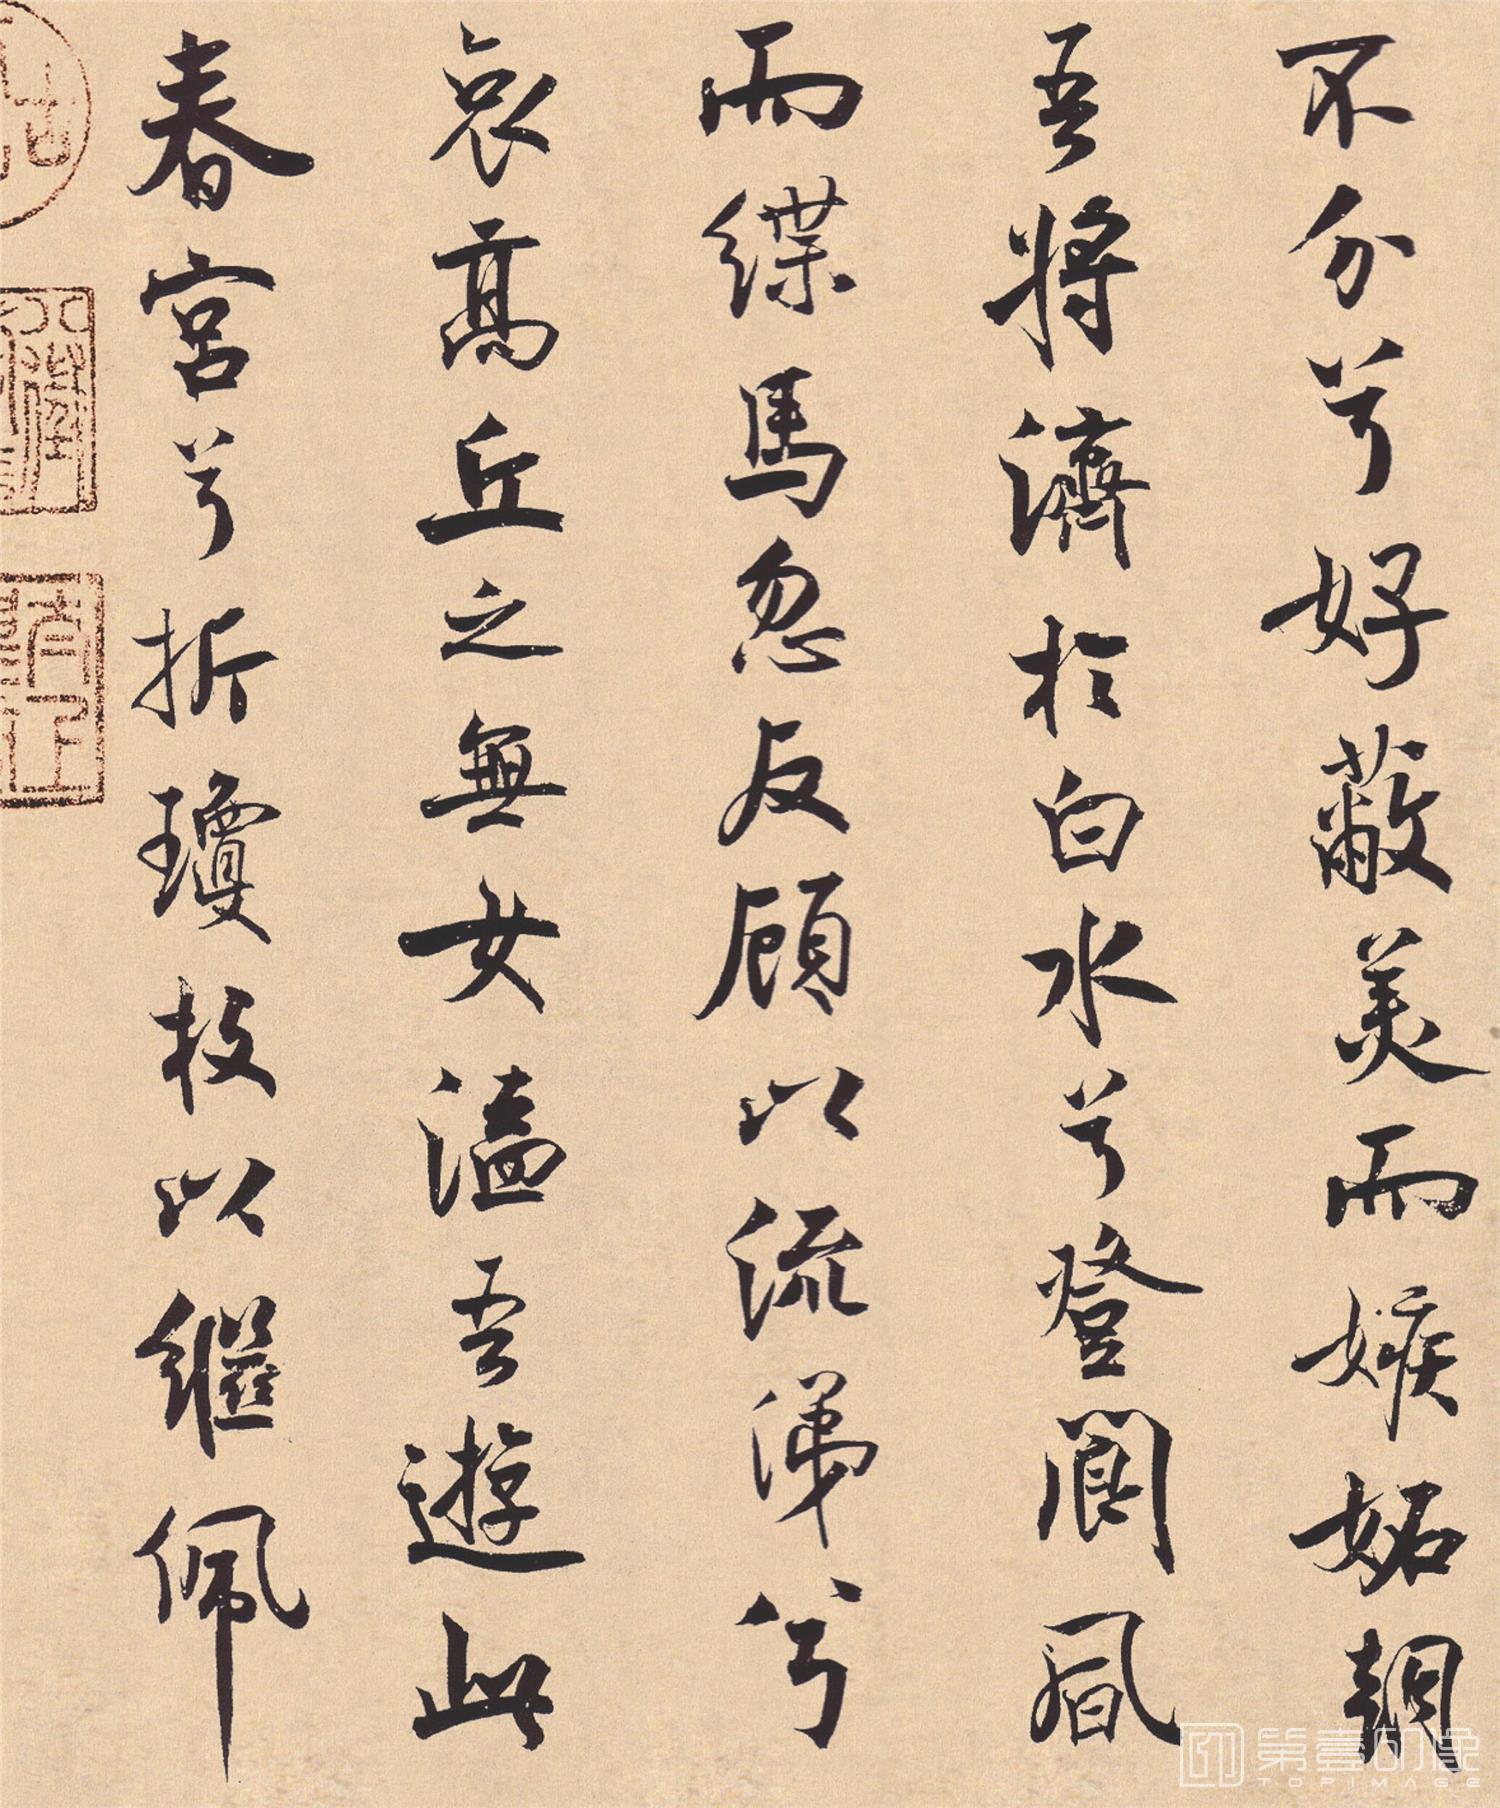 不分兮好蔽美而嫉妬朝
吾將濟於白水兮登閬風
而緤馬忽反顧以流涕兮
哀高丘之無女溘吾遊此
春宮兮折瓊枝以繼佩
第壹印像
TOPIMAGE